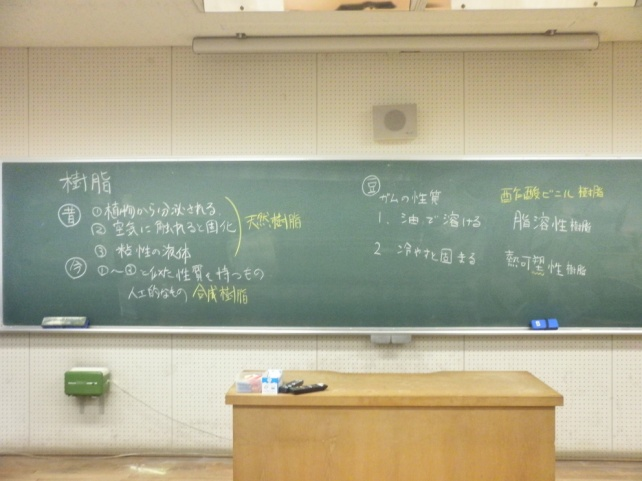 樹脂
昔 ①植物から分泌される
②空気に触れると固化
③粘性の液体
天然樹脂
今 ①〜③と似た性質を持つもの
人工的なもの 合成樹脂
豆 ガムの性質
酢酸ビニル樹脂
1. 油で溶ける 脂溶性樹脂
2. 冷やすと固まる 熱可塑性樹脂